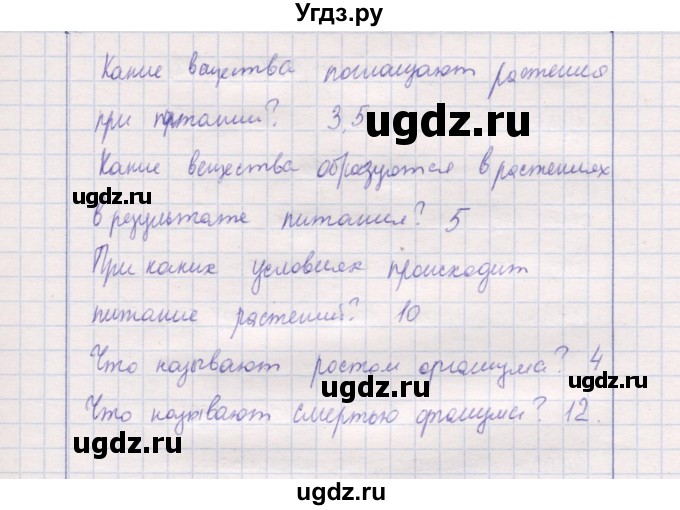 Угдз.ру
Какие вещества поглощают растения
при питании? 3,5
ugdz.ru
Какие вещества образуются в растениях
ugdz.ru
в результате питания? 5
ugdz.ru
При каких условиях происходит
питание растений? 10
Что называют ростом организма? 4
ugdz.ru
Что называют смертью организма? 12.
ugdz.ru
ugdz.ru